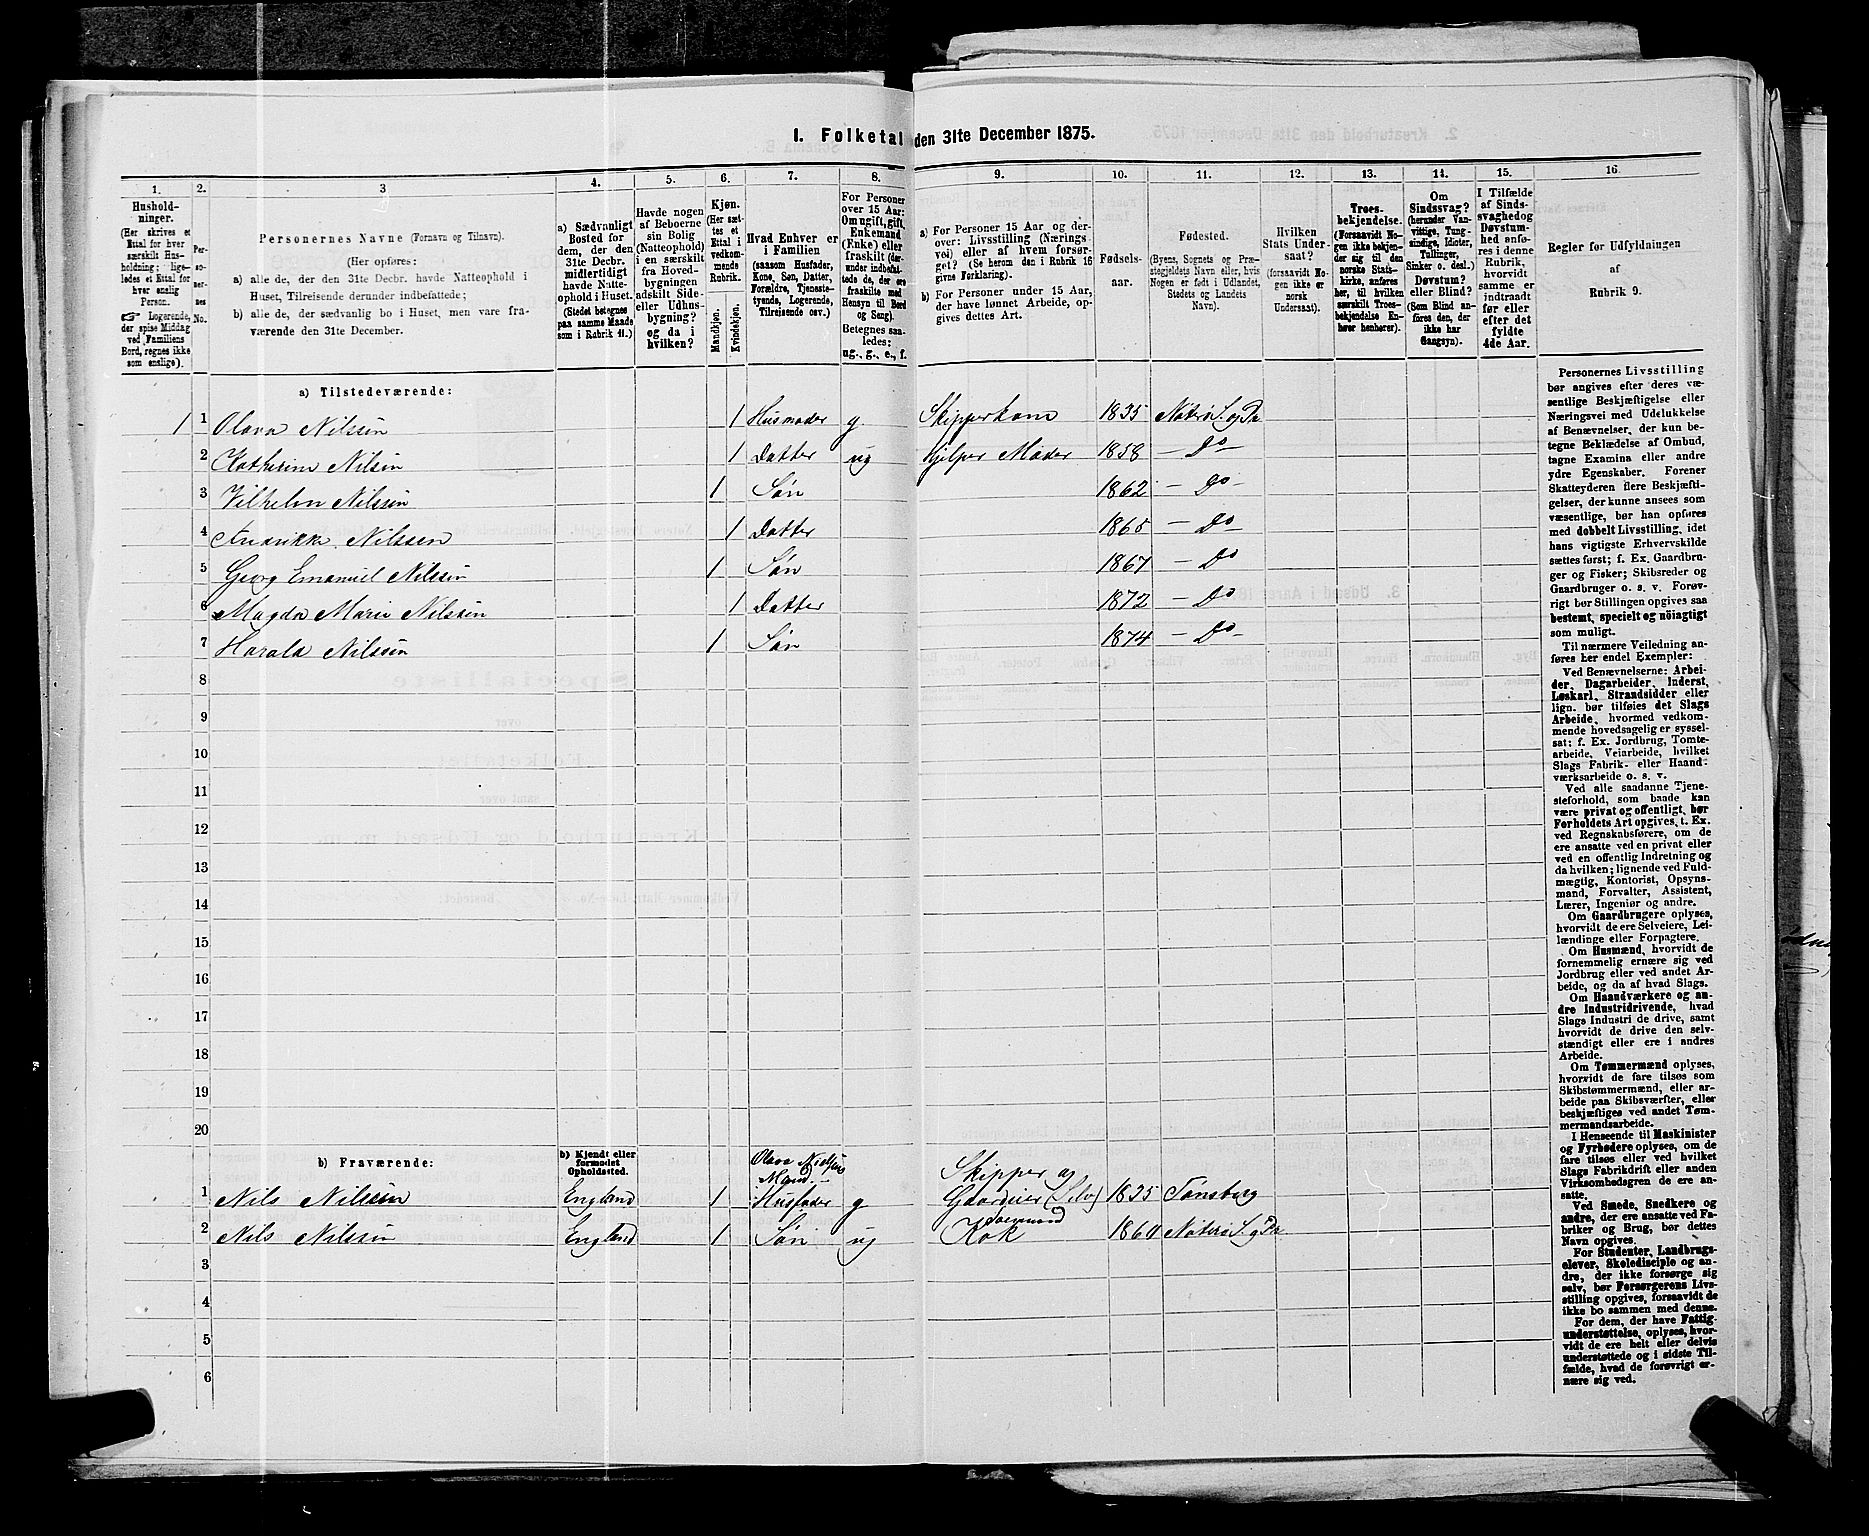 1. Folketal den 31te December 1875.
1. Husholdninger. (Her skrives et Ettal for hver særskilt Husholdning; ligeledes et Ettal for hver enslig Person. Logerende, der spise Middag ved Familiens Bord, regnes ikke som enslige).
2. Personernes No.
3 Personernes Navne (Fornavn og Tilnavn). (Her opføres: a) alle de, der den 31te Decbr. havde Natteophold i Huset, Tilreisende derunder indbefattede; b) alle de, der sædvanlig bo i Huset, men vare fraværende den 31te December.
4. a) Sædvanligt Bosted for dem, der den 31te Decbr. midlertidigt havde Natteophold i Huset. (Stedet betegnes paa samme Maade som i Rubrik 11.)
5. Havde nogen af Beboerne sin Bolig (Natteophold) i en særskilt fra Hovedbygningen adskilt Side- eller Udhusbygning? og da i hvilken?
6. Kjøn. (Her sættes et Ettal i vedkommende Rubrik. Mandkjøn. Kvindekjøn.
7. Hvad Enhver er i Familien (saasom Husfader, Kone, Søn, Datter, Forældre, Tjenestetyende, Logerende, Tilreisende osv.)
8. For Personer over 15 Aar: Om ugift, gift, Enkemand (Enke) eller fraskilt (derunder indbefattede de, der ere fraskilte med Hensyn til Bord og Seng). Betegnes saaledes: ug., g., e., f.
9. a) For Personer 15 Aar og derover: Livsstilling (Næringsvei) eller af hvem forsørget? (Se herom den i Rubrik 16 givne Forklaring). b) For Personer under 15 Aar, der have lønnet Arbeide, opgives dettes Art.
10. Fødselsaar.
11. Fødested. (Byens, Sognets og Præstegjeldets Navn eller, hvis Nogen er født i Udlandet, Stedets og Landets Navn).
12. Hvilken Stats Undersaat? (forsaavidt Nogen ikke er norsk Undersaat).
13. Troesbekjendelse. (Forsaavidt Nogen ikke bekjender sig til den norske Statskirke, anføres her, til hvilken særskilt Troesbekjendelse Enhver henhører).
14. Om Sindssvag? (herunder Vanvittige, Tungsindige, Idioter, Tullinger, Sinker o. desl.) Døvstum? eller Blind? (Som Blind anføres den, der ikke har Gangsyn).
15. I Tilfælde af Sindssvaghed og Døvstumhed anføres i denne Rubrik, hvorvidt samme er indtraadt før eller efter det fyldte 4de Aar.
16. Regler for Udfyldningen af Rubrik 9.
a) Tilstedeværende:
1 1 Olava Nilssen 1 Husmoder g. Skipperkone 1835 Nøterø S. og Pr
2 Kathrine Nilsen 1 Datter ug Hjelper Moder 1858 — Do
3 Vilhelm Nilssen 1 Søn 1862 — Do —
4 Nilssen 1 Datter 1865 — Do
5 Georg Emanuel Nilssen 1 Søn 1867 — Do
6 Magda Marie Nilssen 1 Datter 1872 — Do
7 Harald Nilssen 1 Søn 1874 — Do —
8
9
10
11
12
13
14
15
16
17
18
19
20
b) Fraværende: b) Kjendt eller formodet Opholdssted.
Olava Nielsens Mand — Skipper og
1 Nils Nilssen England 1 Husfader g Gaardeier (Selv) 1835 Tønsberg
2 Nils Nilssen England 1 Søn ug Kok 1860 Nøterø S. og Pr.
3
4
5
6
Personernes Livsstilling
bør angives efter deres væ-
sentlige Beskjæftigelse eller
Næringsvei med Udelukkelse
af Benævnelser, der kun be-
tegne Beklædelse af Ombud,
tagne Examina eller andre
ydre Egenskaber. Forener
Skatteyderen flere Beskjæfti-
gelser, der kunne ansees som
væsentlige, bør han opføres
med dobbelt Livsstilling, idet
hans vigtigste Erhvervskilde
sættes først; f. Ex. Gaardbru-
ger og Fisker; Skibsreder og
Gaardbruger o. s. v. Forøv-
rigt bør Stillingen opgives saa
bestemt, specielt og nöiagtigt
som muligt.
Til nærmere Veiledning an-
føres her endel Exempler:
Ved Benævnelserne: Arbei-
der, Dagarbeider, Inderst,
Løskarl, Strandsidder eller
lign. bør tilføies det Slags
Arbeide, hvormed vedkom-
mende hovedsagelig er syssel-
sat; f. Ex. Jordbrug, Tomte-
arbeide, Veiarbeide, hvilket
Slags Fabrik- eller Haand-
værksarbeide o. s. v.
Ved alle saadanne Tjene-
steforhold, som baade kan
være privat og offentligt, bør
Forholdets Art opgives, t. Ex.
ved Regnskabsførere, om de
ere ansatte ved en privat eller
ved en offentlig Indretning og
da hvilken; lignende ved Fuld-
mægtig, Kontorist, Opsyns-
mand, Forvalter, Assistent,
Lærer, Ingeniør og andre.
Om Gaardbrugere oplyses,
hvorvidt de ere Selveiere, Lei-
lændinge eller Forpagtere.
Om Husmænd, hvorvidt de
fornemmelig ernære sig ved
Jordbrug eller ved andet Ar-
beide, og da af hvad Slags.
Om Haandværkere og an-
dre Industridrivende, hvad
Slags Industri de drive, samt
hvorvidt de drive den selv-
stændigt eller ere i andres
Arbeide.
Om Tømmermænd oplyses,
hvorvidt de fare tilsøs som
Skibstømmermænd, eller ar-
beide paa Skibsværfter, eller
beskjæftiges ved andet Tøm-
mermandsarbeide.
I Henseende til Maskinister
og Fyrbødere oplyses, om de
fare tilsøs eller ved hvilket
Slags Fabrikdrift eller anden
Virksomhedsgren de ere an-
satte.
Ved Smede, Snedkere og
andre, der ere ansatte ved Fa-
briker og Brug, bør dettes
Navn opgives.
For Studenter, Landbrugs-
elever, Skoledisciple og an-
dre, der ikke forsørge sig
selv, bør Forsørgerens Livs-
stilling opgives, forsaavidt de
ikke bo sammen med denne.
For dem, der have Fattig-
understøttelse, oplyses, hvor-
vidt de ere helt eller delvis
understøttede og i sidste Til-
fælde, hvad de forøvrigt er-
nære sig ved.